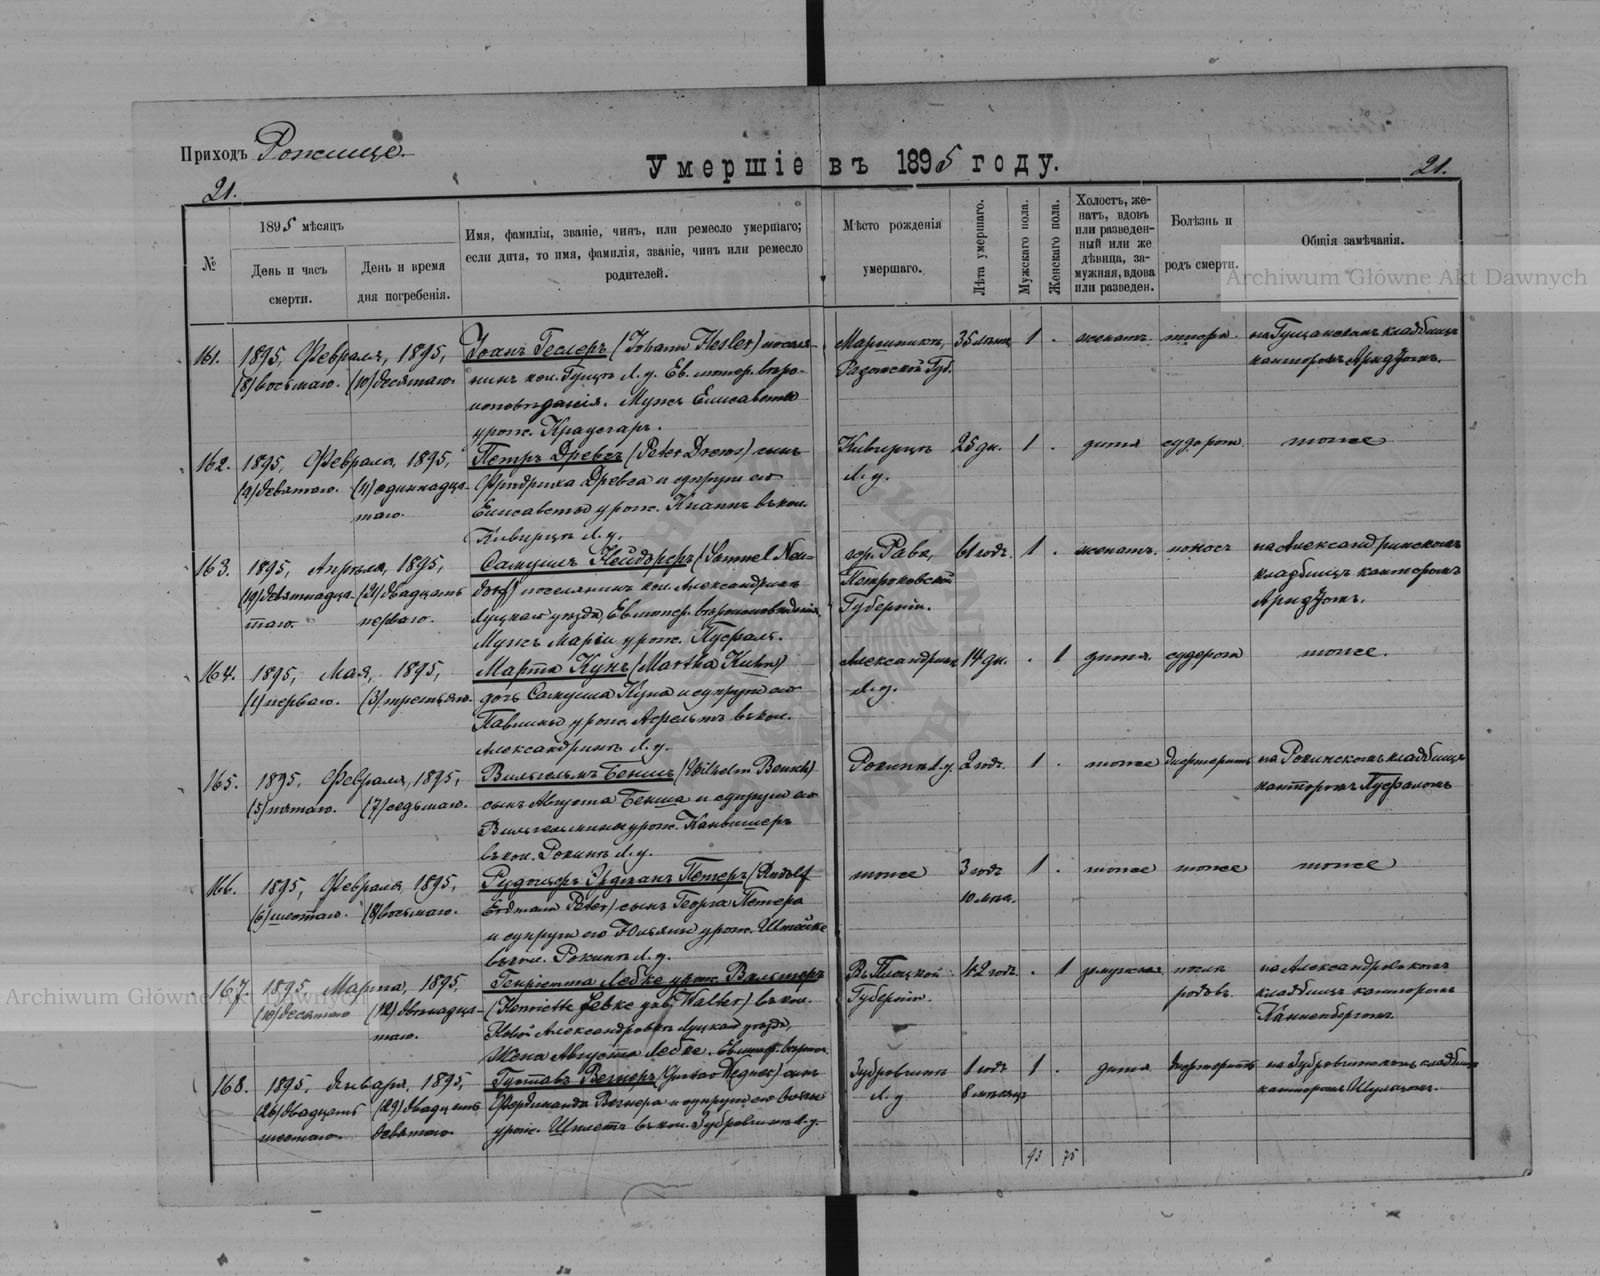 Приходъ Рожище.
Умершіе въ 1895 году.
21.
21.
№
1895 мѣсяцъ
День и часъ смерти.
День и время дня погребенія.
Имя, фамилія, званіе, чинъ, или ремесло умершаго;
если дитя, то имя, фамилія, званіе, чинъ или ремесло
родителей.
Мѣсто рожденія
умершаго.
Лѣта умершаго.
Мужскаго пола.
Женскаго пола.
Холостъ, же-
натъ, вдовъ
или разведен-
ный или же
дѣвица, за-
мужняя, вдова
или разведен.
Болѣзнь и
родъ смерти.
Общія замѣчанія.
Archiwum Główne Akt Dawnych
161.
1895, Февраля, 1895,
(8) восьмаго. (10) десятаго.
Іоанъ Геслеръ (Johann Hesler) поселя-
нинъ кол. Гущъ Л. у. Ев. лютер. вѣро-
исповѣданія. Мужъ Елисаветы
урож. Краузгаръ.
Губ.
35 лѣтъ
1 .
женатъ
на Гущанскомъ кладбищѣ
канторомъ
162.
1895, Февраля, 1895,
(9) девятаго. (11) одиннадца-
таго.
Петръ Древсъ (Peter Drews) сынъ
Фридриха Древса и супруги его
Елисаветы урож. въ кол.
Киверцъ Л. у.
Киверцъ
Л. у.
25 дн.
1 .
дитя
судорога
тоже
163.
1895, Апрѣля, 1895,
(19) девятнадца-
таго.
(21) двадцать
перваго.
Самуилъ Нейдорфъ (Samuel Neu-
dorf) поселянинъ кол. Александринъ
Луцкаго уѣзда, Ев. лютер. вѣроисповѣданія
Мужъ Маріи урож. Пуфаль.
гор. Рава,
Петроковской
Губерніи.
61 годъ.
1 .
женатъ.
поносъ
на Александринскомъ
кладбищѣ канторомъ
164.
1895, Мая, 1895,
(1) перваго. (3) третьяго.
Марта Кунъ (Martha Kuhn)
дочь Самуила Куна и супруги его
Павлины урож. въ кол.
Александринъ Л. у.
Александринъ
Л. у.
14 дн.
. 1
дитя
судорога
тоже.
165.
1895, Февраля, 1895,
(5) пятаго. (7) седьмаго.
Вильгельмъ Беншъ (Wilhelm Bensch)
сынъ Августа Бенша и супруги его
Вильгельмины урож.
въ кол. Рокинъ Л. у.
Рокинъ Л. у.
2 годъ.
1 .
тоже
дифтеритъ
на Рокинскомъ кладбищѣ
канторомъ Пуфалемъ
166.
1895, Февраля, 1895,
(6) шестаго. (8) восьмаго.
Рудольфъ Эрдманъ Петеръ (Rudolf
Erdmann Peter) сынъ Георга Петера
и супруги его Юльяны урож.
въ кол. Рокинъ Л. у.
тоже
3 годъ
10 мѣс.
1 .
тоже
тоже
тоже
167.
1895 Марта, 1895,
(10) десятаго
(12) двѣнадца-
таго.
Генріетта Лебке урож. Вальтеръ
(Henriette Lebke geb. Walter) въ кол.
Новой Александровкѣ Луцкаго уѣзда,
Жена Августа Лебке.
Въ Плоцкой
Губерніи.
42 годъ.
. 1
замужняя
послѣ
родовъ
на Александровскомъ
кладбищѣ канторомъ
Archiwum Główne Akt Dawnych
168.
1895, Января, 1895,
(26) двадцать
шестаго.
(29) двадцать
девятаго.
Густавъ Вегнеръ (Gustav Wegner) сынъ
Фердинанда Вегнера и супруги его
урож. въ кол. Зубровщинъ Л. у.
Зубровщинъ
Л. у
1 годъ
8 мѣсяцъ
1 .
дитя
дифтеритъ
на Зубровщинскомъ кладбищѣ
канторомъ
93 75